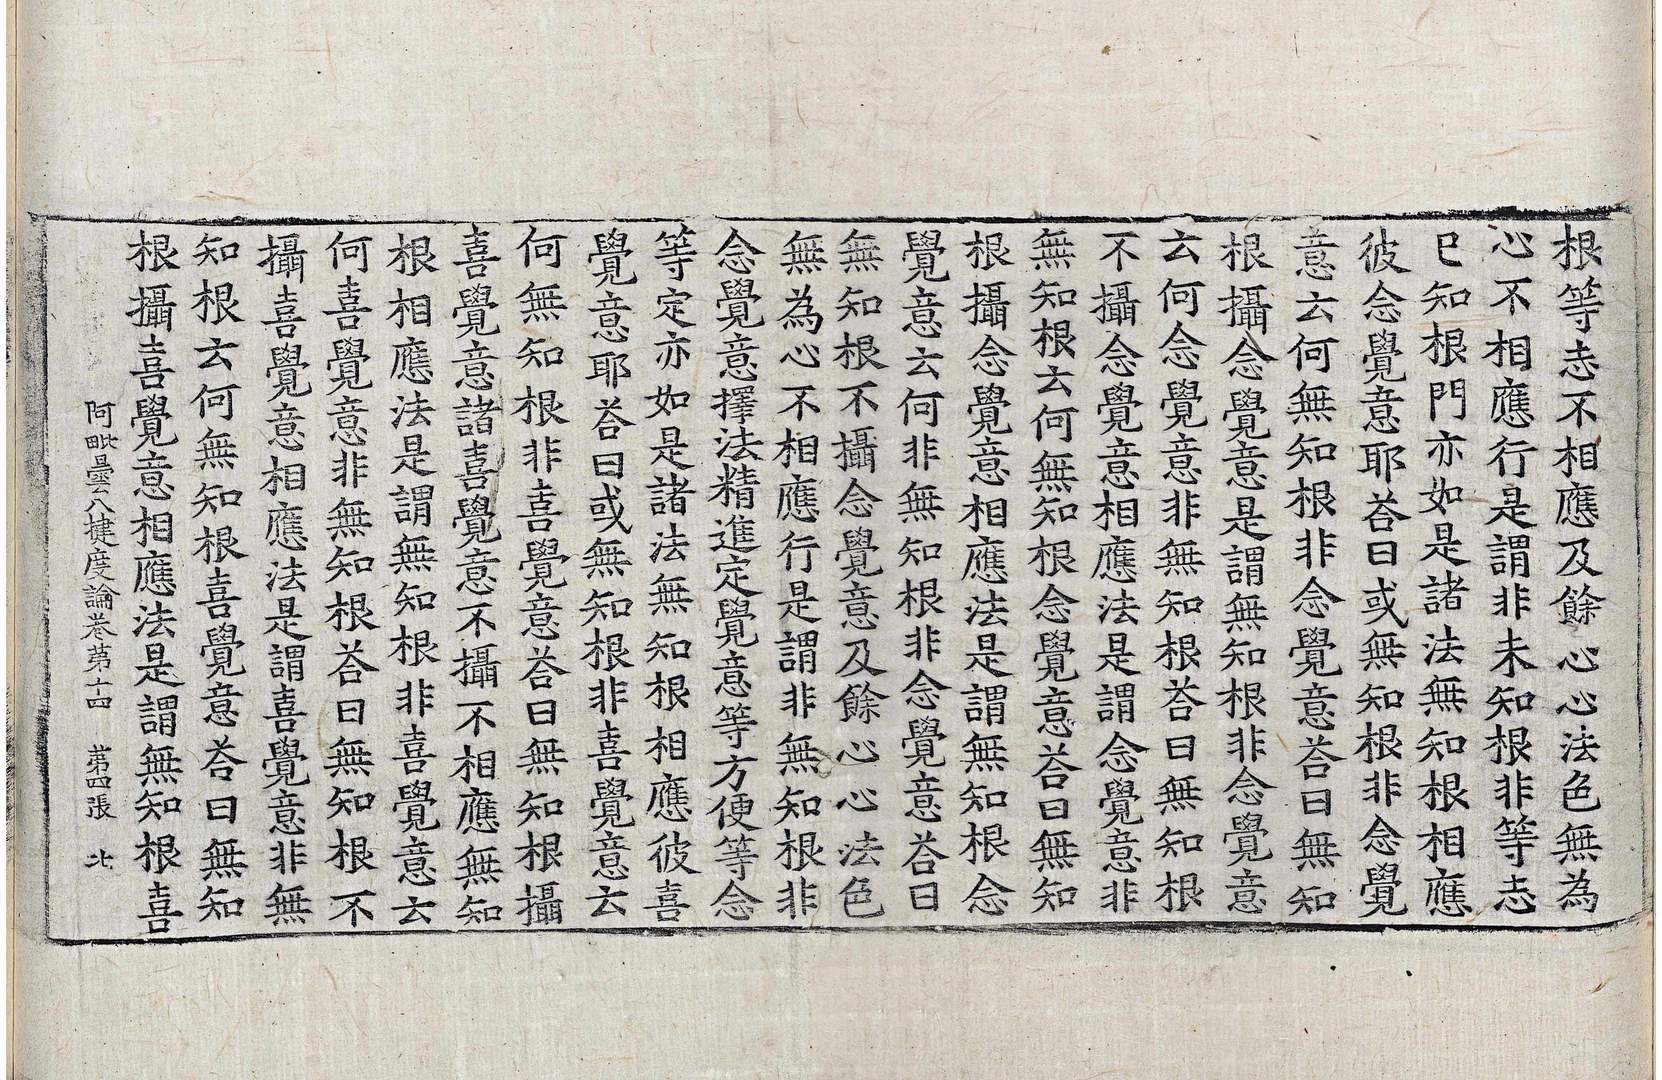 根等志不相應及餘心心法色無為
心不相應行是謂非未知根非等志
已知根門亦如是諸法無知根相應
彼念覺意耶荅曰或無知根非念覺
意云何無知根非念覺意荅曰無知
根攝念覺意是謂無知根非念覺意
云何念覺意非無知根荅曰無知根
不攝念覺意相應法是謂念覺意非
無知根云何無知根念覺意荅曰無知
根攝念覺意相應法是謂無知根念
覺意云何非無知根非念覺意荅曰
無知根不攝念覺意及餘心心法色
無為心不相應行是謂非無知根非
念覺意擇法精進定覺意等方便等念
等定亦如是諸法無知根相應彼喜
覺意耶荅曰或無知根非喜覺意云
何無知根非喜覺意荅曰無知根攝
喜覺意諸喜覺意不攝不相應無知
根相應法是謂無知根非喜覺意云
何喜覺意非無知根荅曰無知根不
攝喜覺意相應法是謂喜覺意非無
知根云何無知根喜覺意荅曰無知
根攝喜覺意相應法是謂無知根喜
阿毗曇八揵度論卷第十四 第四張 北